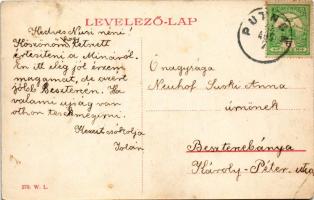 LEVELEZŐ-LAP
Kedves Nusi néni!
Köszönöm hogy
értesíteni a Mináról.
Én itt elég jól érzem
magamat, de azért
jobb Besztercén. Ha
valami ujság van
otthon tessék megírni.
Kezeit csókolja
Zoltán
PUTNOK
Ő nagysága
Neuhof Suski Anna
úrnőnek
Besztercebánya
Károly-Péter-utca
279. W. L.